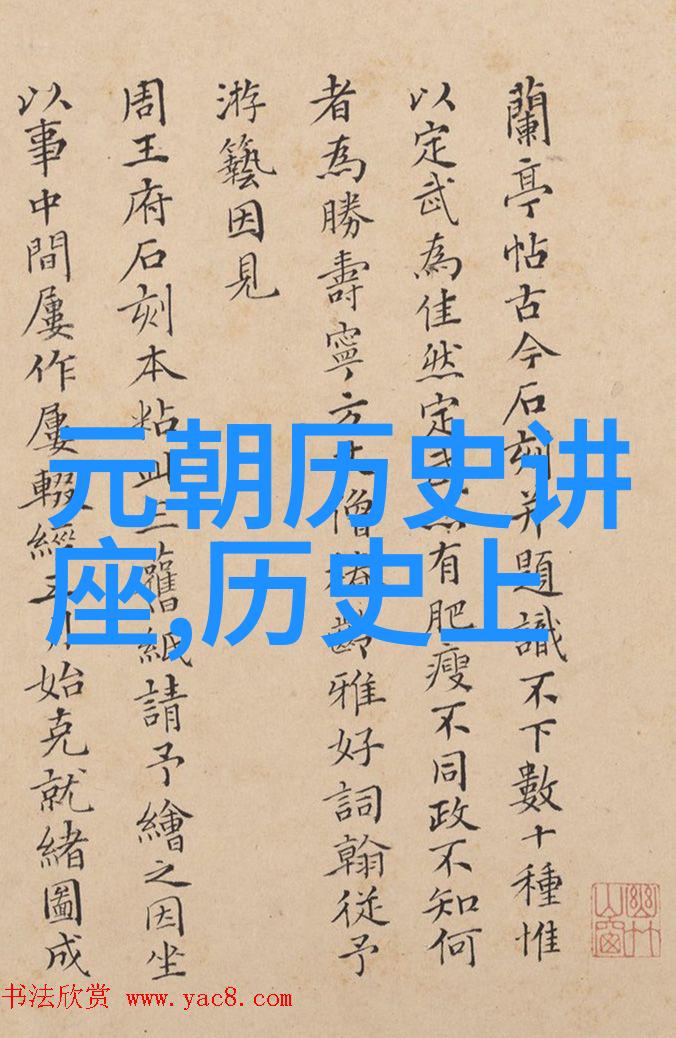 蘭亭帖古今石刻并題識不下數十種惟
以定武為佳然定武亦有肥瘦不同政不知何
者為勝壽寧方丈僧椿齡雅好詞翰從予
游藝因見
周王府石刻本粘此三舊紙請予繪之因坐
以事中間屢作屢輟經五月始克就緒圖成
元朝历史讲
座,历史上
书法欣赏 www.yac8.com